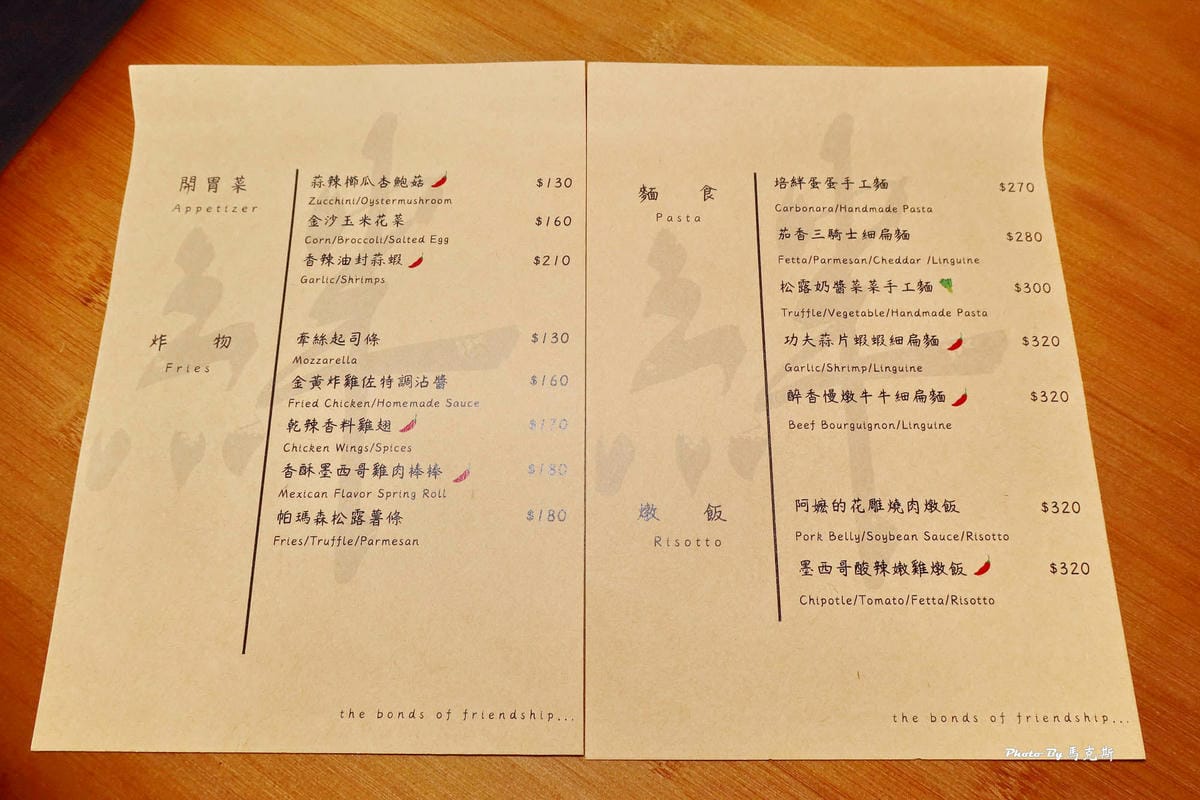 開胃菜
Appetizer
蒜辣櫛瓜杏鮑菇 $130
Zucchini/Oystermushroom
金沙玉米花菜 $160
Corn/Broccoli/Salted Egg
香辣油封蒜蝦 $210
Garlic/Shrimps
炸物
Fries
牽絲起司條 $130
Mozzarella
金黃炸雞佐特調沾醬 $160
Fried Chicken/Homemade Sauce
乾辣香料雞翅 $170
Chicken Wings/Spices
香酥墨西哥雞肉棒棒 $180
Mexican Flavor Spring Roll
帕瑪森松露薯條 $180
Fries/Truffle/Parmesan
the bonds of friendship...
麵食
Pasta
培絆蛋蛋手工麵 $270
Carbonara/Handmade Pasta
茄香三騎士細扁麵 $280
Fetta/Parmesan/Cheddar /Linguine
松露奶醬菜菜手工麵 $300
Truffle/Vegetable/Handmade Pasta
功夫蒜片蝦蝦細扁麵 $320
Garlic/Shrimp/Linguine
醉香慢燉牛牛細扁麵 $320
Beef Bourguignon/Linguine
燉飯
Risotto
阿嬤的花雕燒肉燉飯 $320
Pork Belly/Soybean Sauce/Risotto
墨西哥酸辣嫩雞燉飯 $320
Chipotle/Tomato/Fetta/Risotto
the bonds of friendship...
Photo By 馬克斯